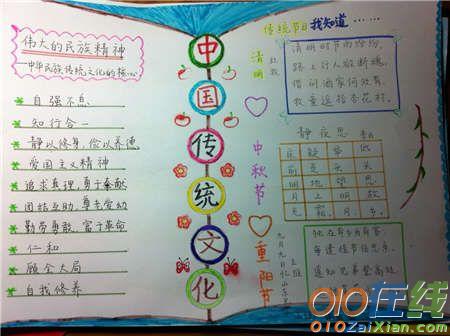 伟大的民族精神
——中华民族传统文化的核心
自强不息
知行合一
静以修身,俭以养德
爱国主义精神
追求真理,勇于奉献
团结互助,尊老爱幼
勤劳勇敢,富于革命
仁和
顾全大局
自我修养
中
国
传
统
文
化
传统节日我知道……
清明
杜牧
清明时节雨纷纷,
路上行人欲断魂。
借问酒家何处有,
牧童遥指杏花村。
中秋节
静夜思
床 疑 举 低
前 是 头 头
明 地 望 思
月 上 明 故
光 霜 月 乡
重阳节
九月九日忆山东兄弟
王维
每逢佳节倍思亲。
遥知兄弟登高处
010在线
010ZaiXian.com